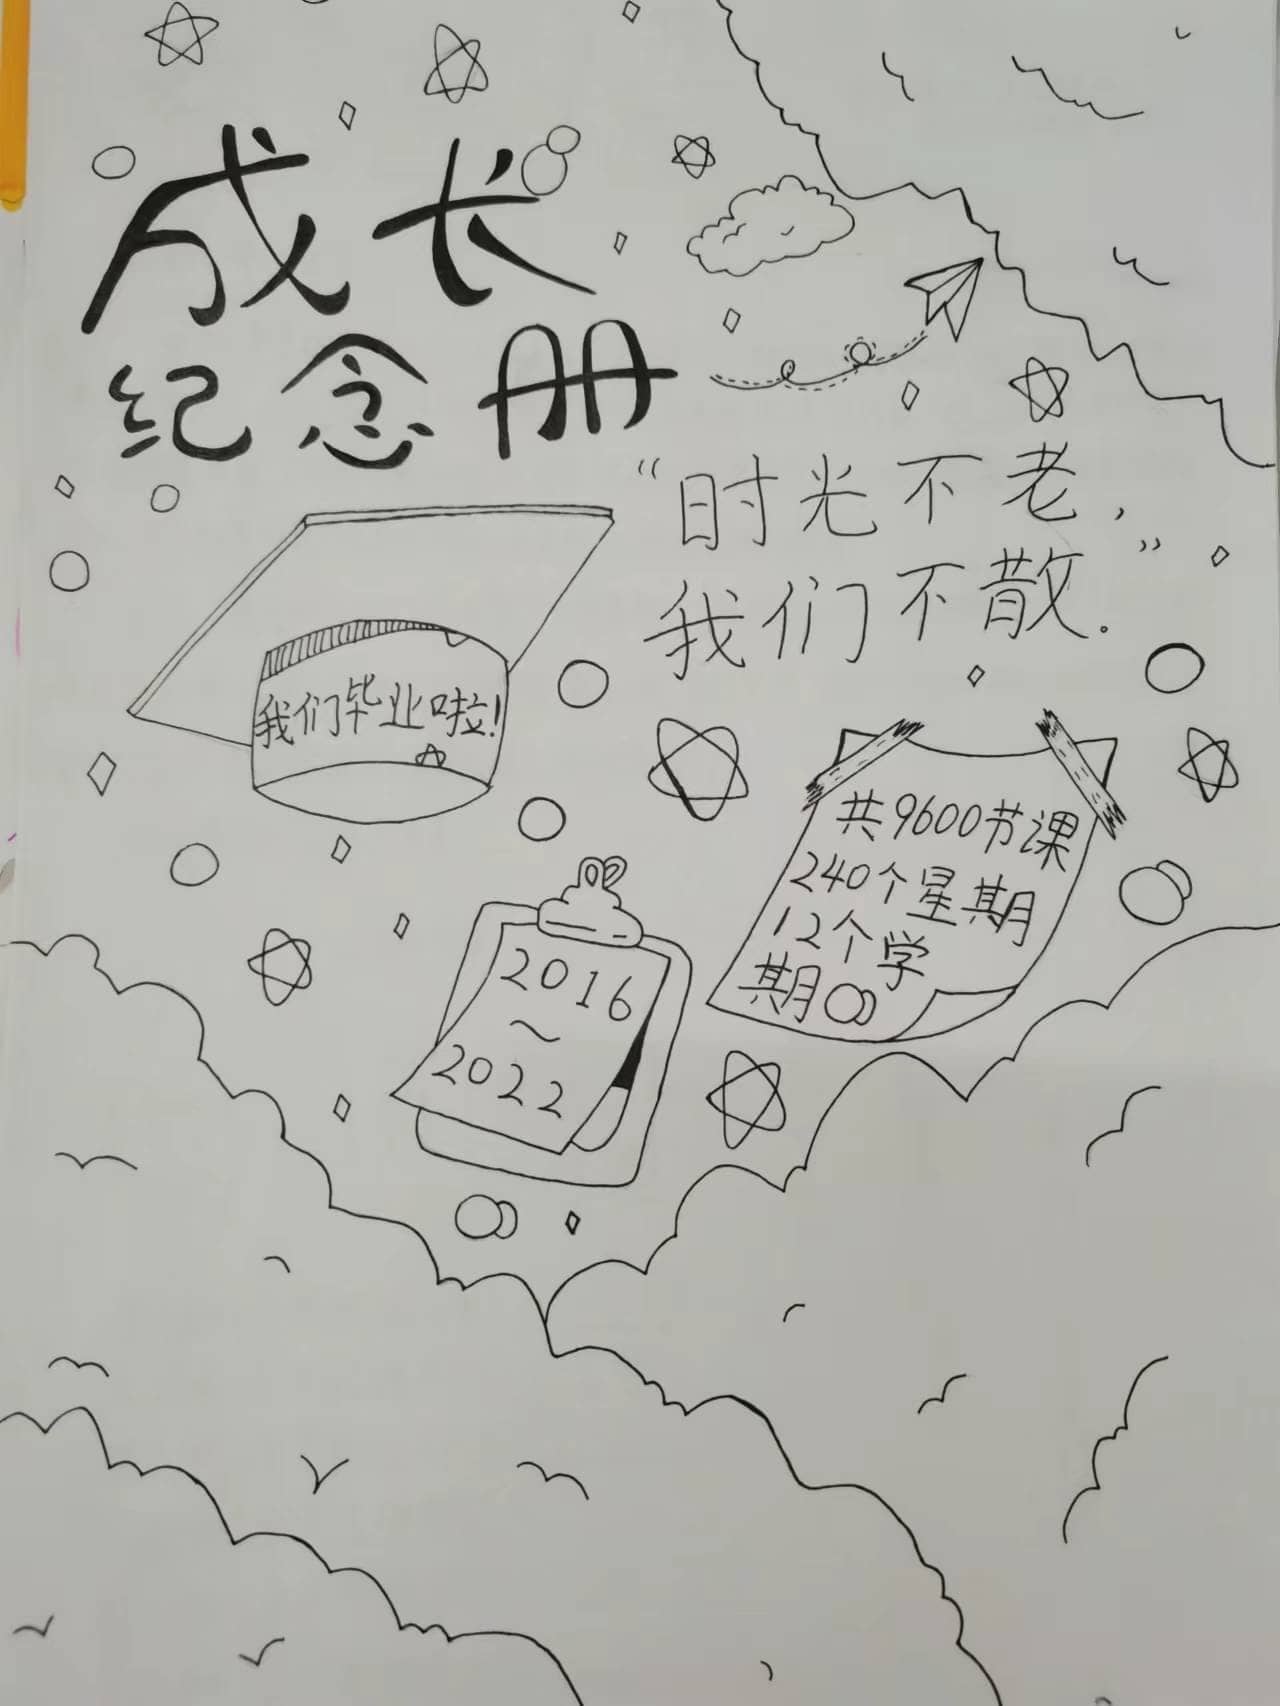 成长
纪念册
“时光不老，
我们不散。”
我们毕业啦!
共9600节课
240个星期
12个学
期
2016
~
2022